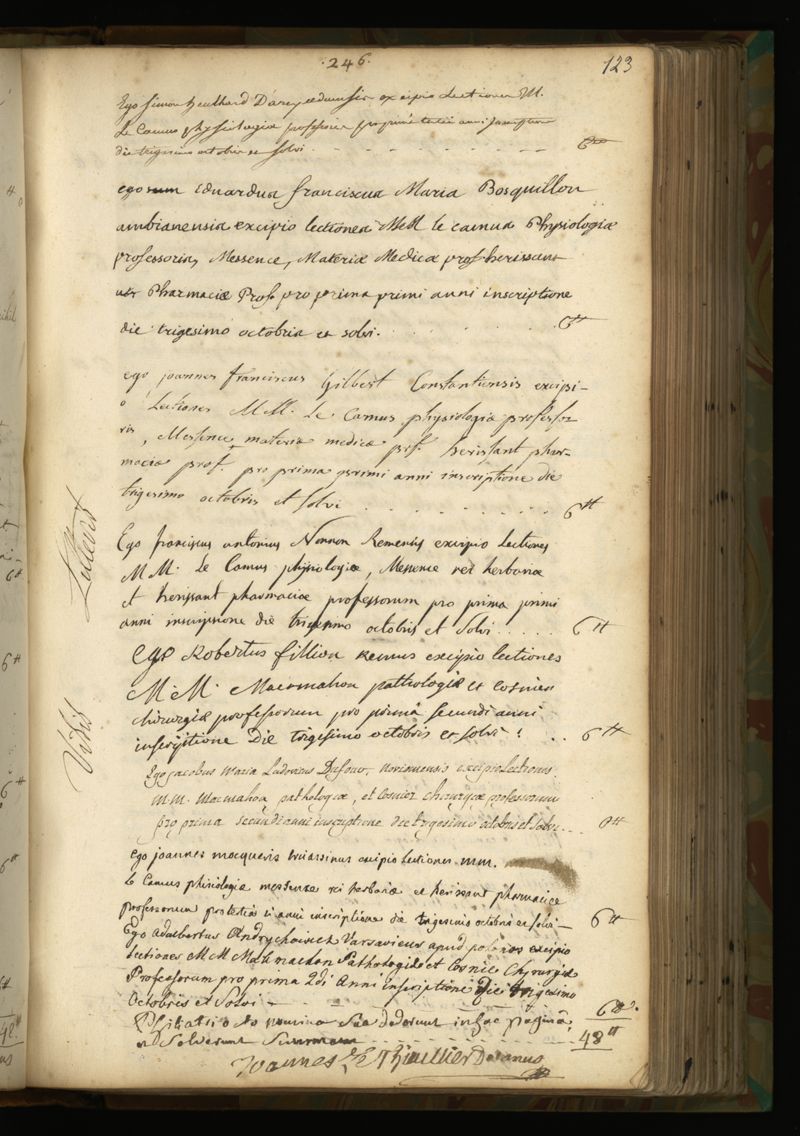 .246.
123
Ego Simon heulhard D'arcy eduensis excipio Lectiones M.
Le Camus physiologiæ professoris pro prima tertii anni inscriptione
die trigesimo octobris et solvi 6ᵗᵗ
ego sum Eduardus franciscus Maria Bosquillon
ambianensis excipio lectiones MM le camus Physiologiæ
professoris, Messence, Materiæ Medicæ prof herissant
Pharmaciæ Prof. pro prima primi anni inscriptione
die trigesimo octobris et solvi. 6ᵗᵗ
ego joannes franciscus Gilbert Constantiensis excipi-
o Lectiones MM. Le Camus physiologiæ professo
ris, Messence materiæ medicæ prof. herissant phar-
maciæ prof. pro prima primi anni inscriptione die
trigesimo octobris et solvi 6ᵗᵗ
Ego franciscus antonius Nonnon Remensis excipio Lectiones
MM. Le Camus physiologiæ, Messence rei herbariæ
et herissant pharmaciæ professorum pro prima primi
anni inscriptione die trigesimo octobris et solvi ..... 6ᵗᵗ
Ego Robertus fillion Remus excipio lectiones
M.M. Macmahon pathologiæ et cosnier
chirurgiæ professorum pro primâ secundi anni
inscriptione Die trigesimo octobris et solvi . .. 6ᵗᵗ
Ego jacobus Maria Ludovicus Dufour, excipio Lectiones
M.M. Macmahon pathologiæ, et Cosnier chirurgiæ professorum
pro prima secundi anni inscriptione die trigesimo octobris et solvi... 6ᵗᵗ
Ego joannes macqueris excipio Lectiones mm.
le Camus phisiologiæ messence rei herbariæ et herissant pharmaciæ
professorum pro tertia ii anni inscriptione die trigesimo octobris et solvi — 6ᵗᵗ
Ego adalbertus Andrychowicz Varsaviens apud polonos excipio
Lectiones MM Macmachon Pathologiæ et Cosnier Chyrurgiæ
Professorum pro prima 2di Anni Inscriptione Die trigesimo
Octobris et Solvi 6ᵗᵗ.
Philiatri octo nomina sua dederunt in hac paginâ,
ac Solverunt Summam 48ᵗᵗ
Joannes Le Thieullier Decanus